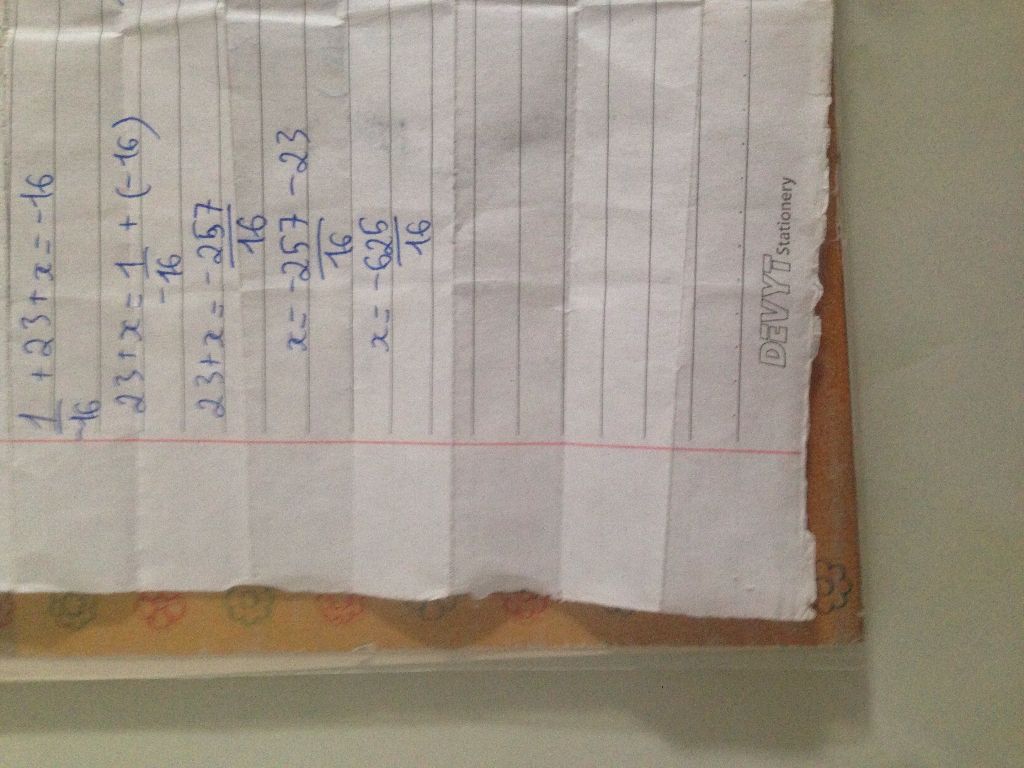 1/-16 + 23 + x = -16
23 + x = 1/-16 + (-16)
23 + x = -257/16
x = -257/16 - 23
x = -625/16
DEVYT Stationery